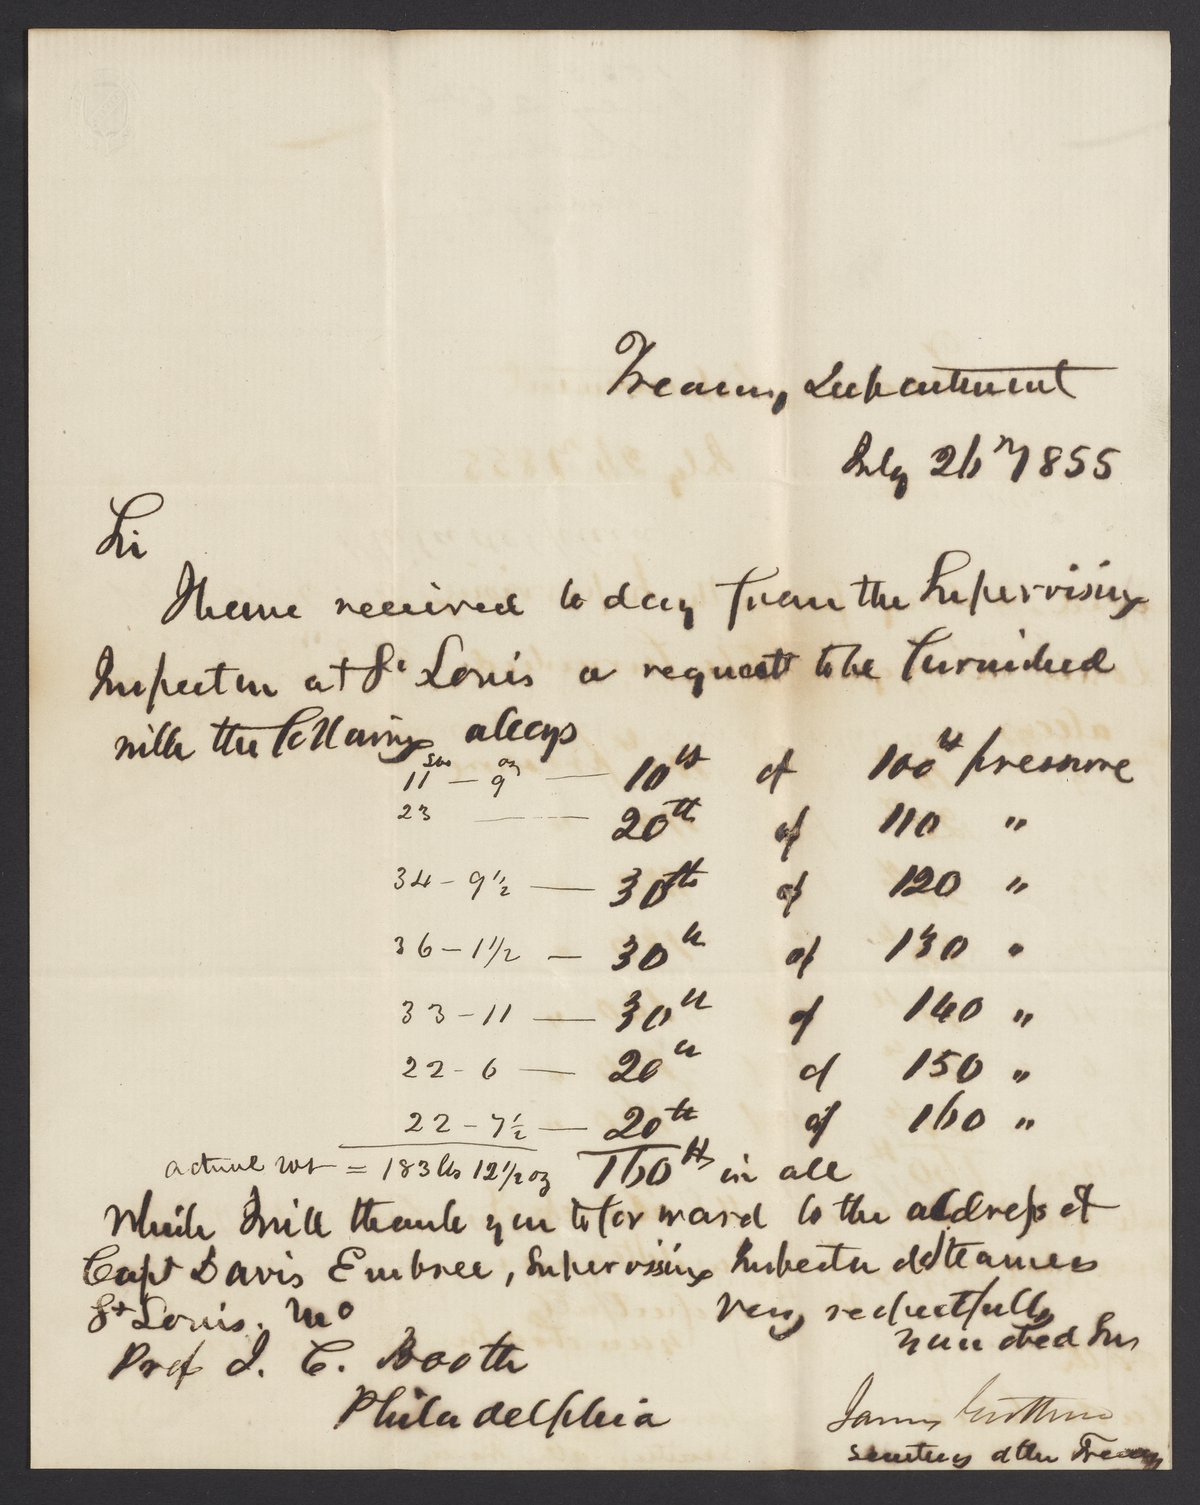 Treasury Department
July 26th 1855
Sir
I have received to day from the Supervising
Inspector at St Louis a request to be furnished
with the following alloys
11 lbs — 9 oz — 10 lb of 100 lb pressure
23 — 20 lb of 110 "
34 - 9 1/2 — 30 lb of 120 "
36 - 1 1/2 — 30 lb of 130 "
33 - 11 — 30 lb of 140 "
22 - 6 — 20 lb of 150 "
22 - 7 1/2 — 20 lb of 160 "
actual wt = 183 lbs 12 1/2 oz 160 lbs in all
Which I will thank you to forward to the address of
Capt Davis Embree, Supervising Inspector of Steamers
St Louis. Mo
Very respectfully
Your obed Srv
Prof J. C. Booth
Philadelphia
James Guthrie
Secretary of the Treasury